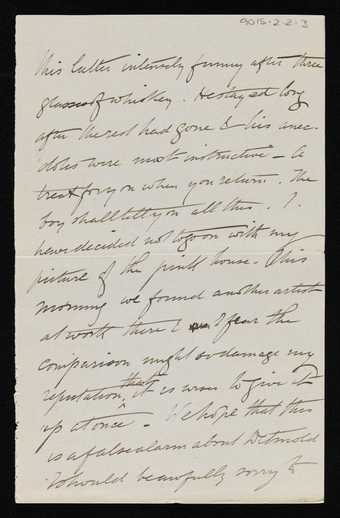 9015-2-2-3
this latter intensely funny after three
glasses of whiskey. He stayed long
after the rest had gone & his anec-
dotes were most instructive - a
treat for you when you return. The
boy shall tell you all this. I
have decided not to go on with my
picture of the pink house. This
morning we found another artist
at work there & I fear the
comparison might so damage my
reputation, that it is wise to give it
up at once - We hope that this
is a false alarm about Detmold
I should be awfully sorry to